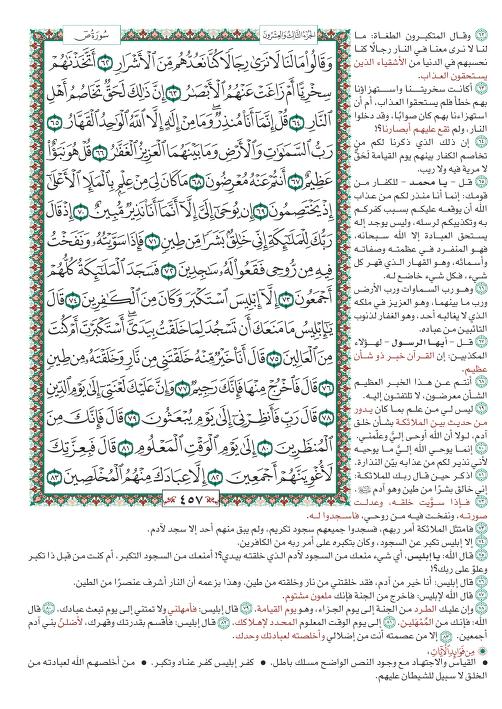 سُورَةُ صٓ
الجُزْءُ الثَّالِثُ وَالعِشْرُونَ
وَقَالُوا۟ مَا لَنَا لَا نَرَىٰ رِجَالًا كُنَّا نَعُدُّهُم مِّنَ ٱلْأَشْرَارِ ٦٢ أَتَّخَذْنَٰهُمْ
سِخْرِيًّا أَمْ زَاغَتْ عَنْهُمُ ٱلْأَبْصَٰرُ ٦٣ إِنَّ ذَٰلِكَ لَحَقٌّ تَخَاصُمُ أَهْلِ
ٱلنَّارِ ٦٤ قُلْ إِنَّمَآ أَنَا۠ مُنذِرٌ ۖ وَمَا مِنْ إِلَٰهٍ إِلَّا ٱللَّهُ ٱلْوَٰحِدُ ٱلْقَهَّارُ ٦٥
رَبُّ ٱلسَّمَٰوَٰتِ وَٱلْأَرْضِ وَمَا بَيْنَهُمَا ٱلْعَزِيزُ ٱلْغَفَّٰرُ ٦٦ قُلْ هُوَ نَبَؤٌا۟
عَظِيمٌ ٦٧ أَنتُمْ عَنْهُ مُعْرِضُونَ ٦٨ مَا كَانَ لِىَ مِنْ عِلْمٍۭ بِٱلْمَلَإِ ٱلْأَعْلَىٰٓ
إِذْ يَخْتَصِمُونَ ٦٩ إِن يُوحَىٰٓ إِلَىَّ إِلَّآ أَنَّمَآ أَنَا۠ نَذِيرٌ مُّبِينٌ ٧٠ إِذْ قَالَ
رَبُّكَ لِلْمَلَٰٓئِكَةِ إِنِّى خَٰلِقٌۢ بَشَرًا مِّن طِينٍ ٧١ فَإِذَا سَوَّيْتُهُۥ وَنَفَخْتُ
فِيهِ مِن رُّوحِى فَقَعُوا۟ لَهُۥ سَٰجِدِينَ ٧٢ فَسَجَدَ ٱلْمَلَٰٓئِكَةُ كُلُّهُمْ
أَجْمَعُونَ ٧٣ إِلَّآ إِبْلِيسَ ٱسْتَكْبَرَ وَكَانَ مِنَ ٱلْكَٰفِرِينَ ٧٤ قَالَ
يَٰٓإِبْلِيسُ مَا مَنَعَكَ أَن تَسْجُدَ لِمَا خَلَقْتُ بِيَدَىَّ ۖ أَسْتَكْبَرْتَ أَمْ كُنتَ
مِنَ ٱلْعَالِينَ ٧٥ قَالَ أَنَا۠ خَيْرٌ مِّنْهُ ۖ خَلَقْتَنِى مِن نَّارٍ وَخَلَقْتَهُۥ مِن طِينٍ
٧٦ قَالَ فَٱخْرُجْ مِنْهَا فَإِنَّكَ رَجِيمٌ ٧٧ وَإِنَّ عَلَيْكَ لَعْنَتِىٓ إِلَىٰ يَوْمِ ٱلدِّينِ
٧٨ قَالَ رَبِّ فَأَنظِرْنِىٓ إِلَىٰ يَوْمِ يُبْعَثُونَ ٧٩ قَالَ فَإِنَّكَ مِنَ
ٱلْمُنظَرِينَ ٨٠ إِلَىٰ يَوْمِ ٱلْوَقْتِ ٱلْمَعْلُومِ ٨١ قَالَ فَبِعِزَّتِكَ
لَأُغْوِيَنَّهُمْ أَجْمَعِينَ ٨٢ إِلَّا عِبَادَكَ مِنْهُمُ ٱلْمُخْلَصِينَ ٨٣
٤٥٧
٦٢ وقال المتكبرون الطغاة: ما
لنا لا نرى معنا في النار رجالًا كنا
نحسبهم في الدنيا من الأشقياء الذين
يستحقون العذاب.
٦٣ أكانت سخريتنا واستهزاؤنا
بهم خطأً فلم يستحقوا العذاب، أم أن
استهزاءنا بهم كان صوابًا، وقد دخلوا
النار، ولم تقع عليهم أبصارنا؟!
٦٤ إن ذلك الذي ذكرنا لكم من
تخاصم الكفار بينهم يوم القيامة لَحَقٌّ
لا مرية فيه ولا ريب.
٦٥ قل - يا محمد - للكفار من
قومك: إنما أنا منذر لكم من عذاب
الله أن يوقعه عليكم بسبب كفركم
به وتكذيبكم لرسله، وليس يوجد إله
يستحق العبادة إلا الله سبحانه،
فهو المنفرد في عظمته وصفاته
وأسمائه، وهو القهار الذي قهر كل
شيء، فكل شيء خاضع له.
٦٦ وهو رب السماوات ورب الأرض
ورب ما بينهما، وهو العزيز في ملكه
الذي لا يغالبه أحد، وهو الغفار لذنوب
التائبين من عباده.
٦٧ قل - أيها الرسول - لهؤلاء
المكذبين: إن القرآن خبر ذو شأن
عظيم.
٦٨ أنتم عن هذا الخبر العظيم
الشأن معرضون، لا تلتفون إليه.
٦٩ ليس لي من علم بما كان يدور
من حديث بين الملائكة بشأن خلق
آدم، لولا أن الله أوحى إليَّ وعلَّمني.
٧٠ إنما يوحي الله إليَّ ما يوحيه
لأني نذير لكم من عذابه بيِّن النذارة.
٧١ اذكر حين قال ربك للملائكة:
إني خالق بشرًا من طين وهو آدم ﷺ.
٧٢ فإذا سوَّيت خلقه، وعدلت
صورته، ونفخت فيه من روحي، فاسجدوا له.
٧٣ فامتثل الملائكة أمر ربهم، فسجدوا جميعهم سجود تكريم، ولم يبق منهم أحد إلا سجد لآدم.
٧٤ إلا إبليس تكبر عن السجود، وكان بتكبره على أمر ربه من الكافرين.
٧٥ قال الله: يا إبليس، أي شيء منعك من السجود لآدم الذي خلقته بيدي؟! أمنعك من السجود التكبر، أم كنت من قبل ذا تكبر
وعلوّ على ربك؟!
٧٦ قال إبليس: أنا خير من آدم، فقد خلقتني من نار وخلقته من طين. وهذا بزعمه أن النار أشرف عنصرًا من الطين.
٧٧ قال الله لإبليس: فاخرج من الجنة فإنك ملعون مشتوم.
٧٨ وإن عليك الطرد من الجنة إلى يوم الجزاء، وهو يوم القيامة. ٧٩ قال إبليس: فأمهلني ولا تمتني إلى يوم تبعث عبادك. ٨٠ قال
الله: فإنك من المُمْهَلين. ٨١ إلى يوم الوقت المعلوم المحدد لإهلاكك. ٨٢ قال إبليس: فأقسم بقدرتك وقهرك، لأضلنّ بني آدم
أجمعين. ٨٣ إلا من عصمته أنت من إضلالي وأخلصته لعبادتك وحدك.
مِن فَوَائِدِ الآيَاتِ:
• القياس والاجتهاد مع وجود النص الواضح مسلك باطل. • كفر إبليس كفر عناد وتكبر. • من أخلصهم الله لعبادته من
الخلق لا سبيل للشيطان عليهم.